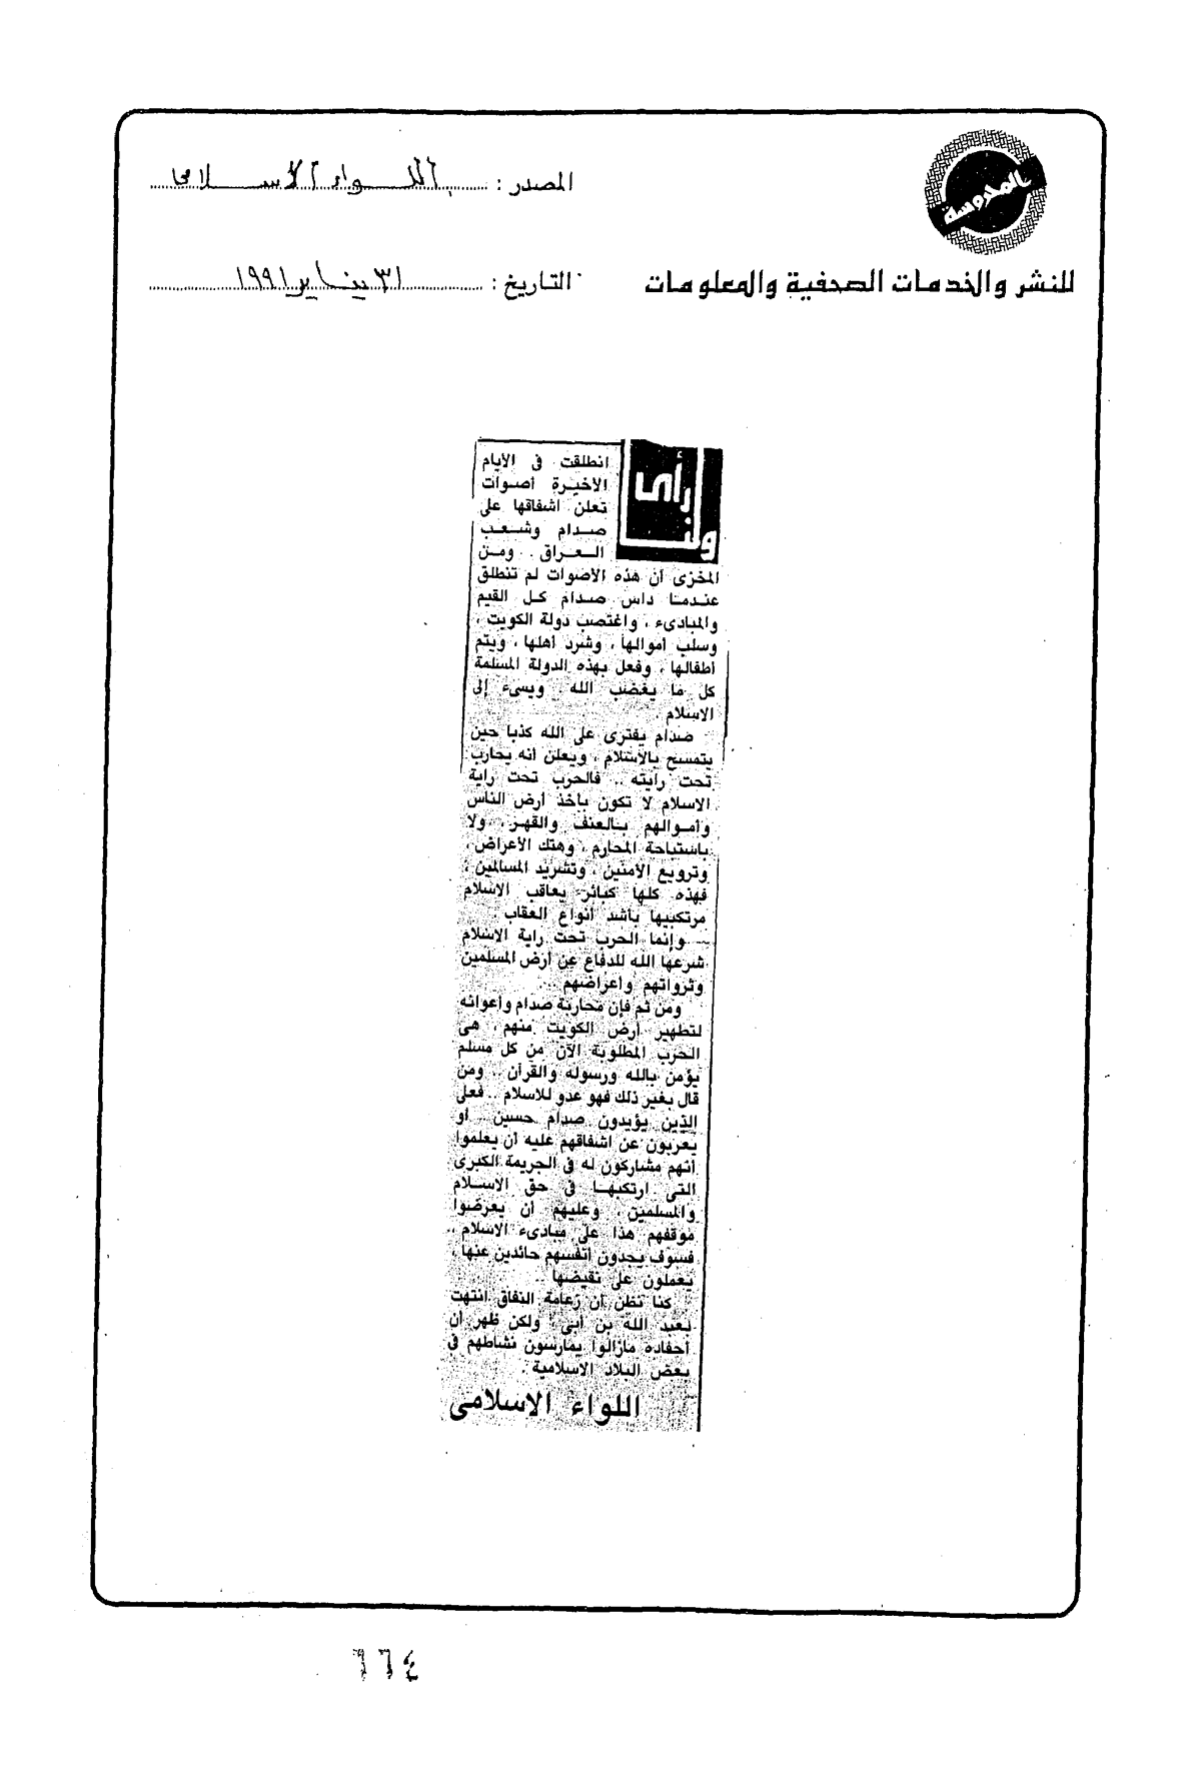 المحروسة
للنشر والخدمات الصحفية والمعلومات
المصدر : اللواء الاسلامى
التاريخ : ٣١ يناير ١٩٩١
ولنا رأى
انطلقت فى الايام
الاخيرة أصوات
تعلن اشفاقها على
صدام وشعب
العراق .. ومن
المخزى أن هذه الأصوات لم تنطلق
عندما داس صدام كل القيم
والمبادىء ، واغتصب دولة الكويت ،
وسلب أموالها ، وشرد أهلها ، ويتم
أطفالها ، وفعل بهذه الدولة المسلمة
كل ما يغضب الله .. ويسىء إلى
الاسلام .
صدام يفترى على الله كذبا حين
يتمسح بالاسلام ، ويعلن أنه يحارب
تحت رايته .. فالحرب تحت راية
الاسلام لا تكون بأخذ أرض الناس
وأموالهم بالعنف والقهر ، ولا
باستباحة المحارم ، وهتك الأعراض ،
وترويع الآمنين ، وتشريد المسالمين ،
فهذه كلها كبائر يعاقب الاسلام
مرتكبيها بأشد أنواع العقاب .
وإنما الحرب تحت راية الاسلام
شرعها الله للدفاع عن أرض المسلمين
وثرواتهم وأعراضهم ..
ومن ثم فإن محاربة صدام وأعوانه
لتطهير أرض الكويت منهم ، هى
الحرب المطلوبة الآن من كل مسلم
يؤمن بالله ورسوله والقرآن .. ومن
قال بغير ذلك فهو عدو للاسلام .. فعلى
الذين يؤيدون صدام حسين .. أو
يعربون عن اشفاقهم عليه أن يعلموا
أنهم مشاركون له فى الجريمة الكبرى
التى ارتكبها فى حق الاسلام
والمسلمين ، وعليهم أن يعرضوا
موقفهم هذا على مبادىء الاسلام ..
فسوف يجدون أنفسهم حائدين عنها ،
يعملون على نقيضها ..
كنا نظن أن زعامة النفاق انتهت
بعبد الله بن أبى ! ولكن ظهر أن
أحفاده مازالوا يمارسون نشاطهم فى
بعض البلاد الاسلامية .
اللواء الاسلامى
٦٦٤